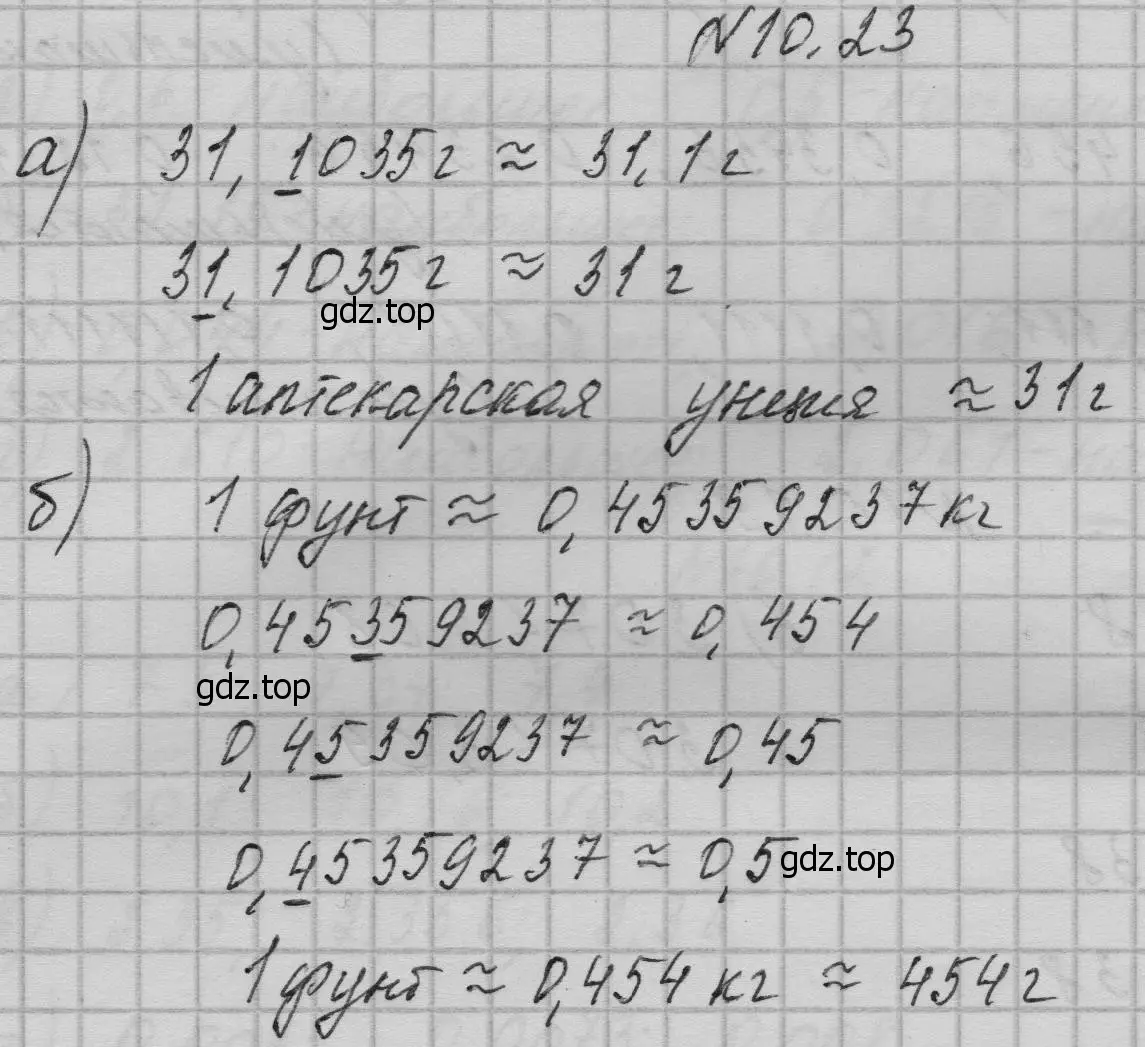 №10.23
а) 31,1035г ≈ 31,1г
31,1035г ≈ 31г
gdz.top
1 аптекарская унция ≈ 31г
б) 1 фунт ≈ 0,45359237кг
0,45359237 ≈ 0,454
gdz.top
0,45359237 ≈ 0,45
0,45359237 ≈ 0,5 gdz.top
1 фунт ≈ 0,454 кг ≈ 454г